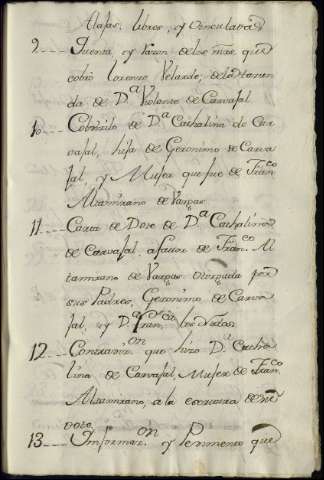 Alajas, libros, y
9 Quenta y razon de los mrs. que
cobró Lorenzo Velarde, de la
da de D.ª Violante de Carvajal
10 Cobdizilo de D.ª Cathalina de Car
vajal, hija de Geronimo de Carva
jal, y Mujer que fue de Fran.co
Altamirano de Vargas
11 Carta de Dote de D.ª Cathalina
de Carvajal, a favor de Fran.co Al
tamirano de Vargas otorgada por
sus Padres, Geronimo de Carva
jal, y D.ª Fran.ca
12 que hizo D.ª Catha
lina de Carvajal, Mujer de Fran.co
Altamirano, a la escritura de
dote.
13 Informaz.on y Pedimento que